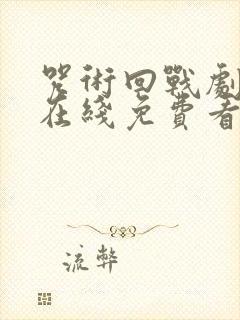 咒術回戰劇
在綫免費看
流弊